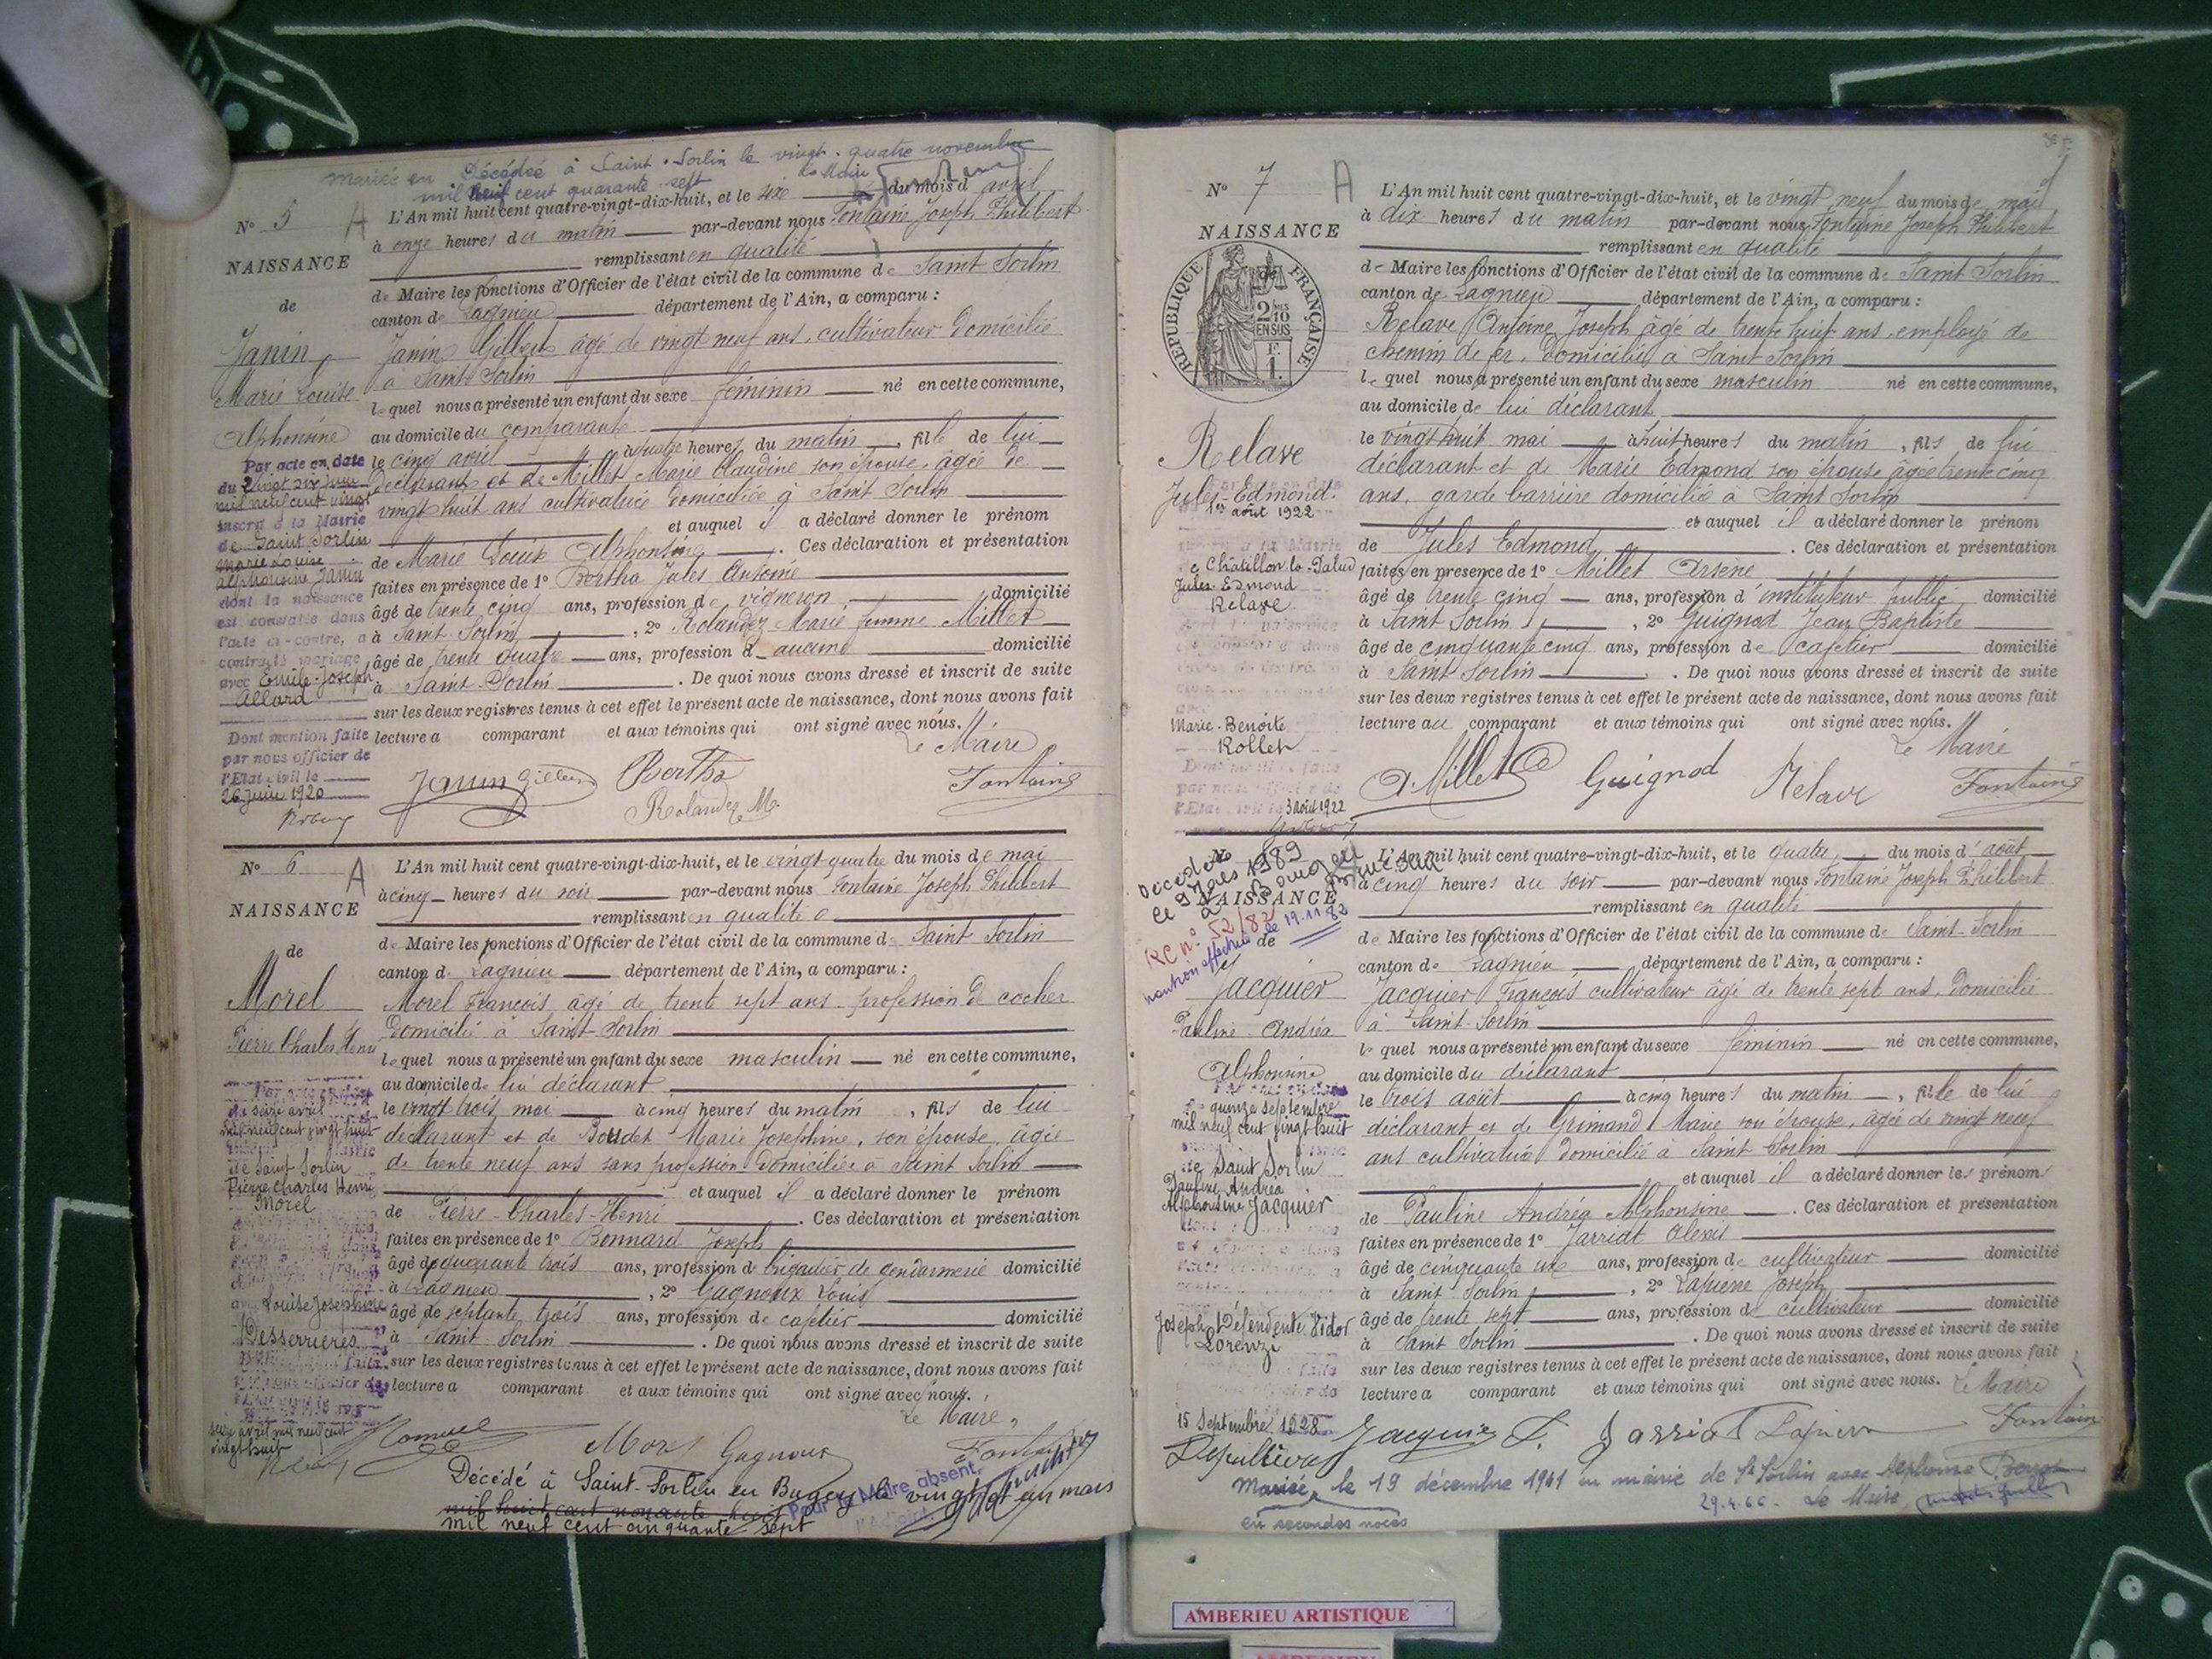 Mariée en Décédée à Saint-Sorlin le vingt-quatre novembre
mil neuf cent quarante sept le Maire
N° 5 A
L'An mil huit cent quatre-vingt-dix-huit, et le six du mois d'avril
à onze heures du matin par-devant nous Fontaine Joseph Philibert
remplissant en qualité
de Maire les fonctions d'Officier de l'état civil de la commune de Saint Sorlin
canton de Lagnieu département de l'Ain, a comparu :
Janin Gilbert âgé de vingt neuf ans, cultivateur domicilié
à Saint Sorlin
lequel nous a présenté un enfant du sexe féminin né en cette commune,
au domicile du comparant
le cinq avril à quatre heures du matin, fille de lui
déclarant et de Millet Marie Claudine son épouse, âgée de
vingt huit ans cultivatrice domiciliée à Saint Sorlin
et auquel il a déclaré donner le prénom
de Marie Louise Alphonsine. Ces déclaration et présentation
faites en présence de 1° Bertha Jules Antoine
âgé de trente cinq ans, profession de vigneron domicilié
à Saint Sorlin, 2° Rolandez Marie femme Millet
âgé de trente quatre ans, profession d aucune domicilié
à Saint-Sorlin. De quoi nous avons dressé et inscrit de suite
sur les deux registres tenus à cet effet le présent acte de naissance, dont nous avons fait
lecture a comparant et aux témoins qui ont signé avec nous.
Le Maire
Janin Gilbert Bertha Fontaine
Rolandez M.
NAISSANCE
de
Janin
Marie Louise
Alphonsine
Par acte en date
du vingt six juin
mil neuf cent vingt
inscrit à la Mairie
de Saint Sorlin
Marie Louise
Alphonsine Janin
dont la naissance
est constatée dans
l'acte ci-contre, a
contracté mariage
avec Emile-Joseph
Allard
Dont mention faite
par nous officier de
l'Etat civil le
26 Juin 1920
N° 6 A
L'An mil huit cent quatre-vingt-dix-huit, et le vingt-quatre du mois de mai
à cinq heures du soir par-devant nous Fontaine Joseph Philibert
remplissant en qualité
de Maire les fonctions d'Officier de l'état civil de la commune de Saint Sorlin
canton de Lagnieu département de l'Ain, a comparu :
Morel François âgé de trente sept ans profession de cocher
domicilié à Saint-Sorlin
lequel nous a présenté un enfant du sexe masculin né en cette commune,
au domicile de lui déclarant
le vingt trois mai à cinq heures du matin, fils de lui
déclarant et de Boudet Marie Josephine, son épouse, âgée
de trente neuf ans sans profession domiciliée à Saint Sorlin
et auquel il a déclaré donner le prénom
de Pierre-Charles-Henri. Ces déclaration et présentation
faites en présence de 1° Bonnard Joseph
âgé de quarante trois ans, profession de brigadier de gendarmerie domicilié
à Lagnieu, 2° Gagnoux Louis
âgé de septante trois ans, profession de cafetier domicilié
à Saint-Sorlin. De quoi nous avons dressé et inscrit de suite
sur les deux registres tenus à cet effet le présent acte de naissance, dont nous avons fait
lecture a comparant et aux témoins qui ont signé avec nous.
Le Maire,
Morel Gagnoux Fontaine
Décédé à Saint-Sorlin en Bugey le vingt et un mars
mil huit cent nonante huit
mil neuf cent cinquante sept
Pour le Maire absent,
l'Adjoint
NAISSANCE
de
Morel
Pierre Charles Henri
seize avril
mil neuf cent vingt huit
de Saint Sorlin
Pierre Charles Henri
Morel
Louise Josephine
Desserrières
seize avril mil neuf cent
vingt huit
N° 7 A
L'An mil huit cent quatre-vingt-dix-huit, et le vingt neuf du mois de mai
à dix heures du matin par-devant nous Fontaine Joseph Philibert
remplissant en qualité
de Maire les fonctions d'Officier de l'état civil de la commune de Saint Sorlin
canton de Lagnieu département de l'Ain, a comparu :
Relave Antoine Joseph âgé de trente huit ans, employé de
chemin de fer, domicilié à Saint Sorlin
lequel nous a présenté un enfant du sexe masculin né en cette commune,
au domicile de lui déclarant
le vingt huit mai à huit heures du matin, fils de lui
déclarant et de Marie Edmond son épouse âgée trente cinq
ans, garde barrière domicilié à Saint Sorlin
et auquel il a déclaré donner le prénom
de Jules Edmond. Ces déclaration et présentation
faites en présence de 1° Millet Arsene
âgé de trente cinq ans, profession d'instituteur public domicilié
à Saint Sorlin, 2° Guignod Jean Baptiste
âgé de cinquante cinq ans, profession de cafetier domicilié
à Saint Sorlin. De quoi nous avons dressé et inscrit de suite
sur les deux registres tenus à cet effet le présent acte de naissance, dont nous avons fait
lecture au comparant et aux témoins qui ont signé avec nous.
Le Maire
A Millet Guignod Relave Fontaine
NAISSANCE
de
RÉPUBLIQUE FRANÇAISE
2/10 EN SUS
F. 1.
Relave
Jules-Edmond.
1er août 1922
Châtillon-la-Palud
Jules-Edmond
Relave
Marie-Benoite
Rollet
3 août 1922
L'An mil huit cent quatre-vingt-dix-huit, et le quatre du mois d'août
à cinq heures du soir par-devant nous Fontaine Joseph Philibert
remplissant en qualité
de Maire les fonctions d'Officier de l'état civil de la commune de Saint-Sorlin
canton de Lagnieu département de l'Ain, a comparu :
Jacquier François cultivateur âgé de trente sept ans, domicilié
à Saint-Sorlin
lequel nous a présenté un enfant du sexe féminin né en cette commune,
au domicile du déclarant
le trois août à cinq heures du matin, fille de lui
déclarant et de Grimand Marie son épouse, âgée de vingt neuf
ans cultivatrice domicilié à Saint Sorlin
et auquel il a déclaré donner les prénoms
de Pauline Andréa Alphonsine. Ces déclaration et présentation
faites en présence de 1° Jarriat Alexis
âgé de cinquante un ans, profession de cultivateur domicilié
à Saint Sorlin, 2° Lapierre Joseph
âgé de trente sept ans, profession de cultivateur domicilié
à Saint Sorlin. De quoi nous avons dressé et inscrit de suite
sur les deux registres tenus à cet effet le présent acte de naissance, dont nous avons fait
lecture a comparant et aux témoins qui ont signé avec nous.
Le Maire
Jacquier F. Jarriat Lapierre Fontaine
Mariée le 19 décembre 1941 en mairie de St Sorlin avec Alphonse
en secondes noces
29.4.66. Le Maire,
N°
Décédée
le 9 Mars 1989
à Bourg en
NAISSANCE
RC n° 52/82
mention effectuée le 19.11.82
de
Jacquier
Pauline Andréa
Alphonsine
quinze septembre
mil neuf cent vingt huit
de Saint Sorlin
Pauline Andréa
Alphonsine Jacquier
Joseph Défendente Vidor
Lorenzi
15 Septembre 1928
AMBERIEU ARTISTIQUE